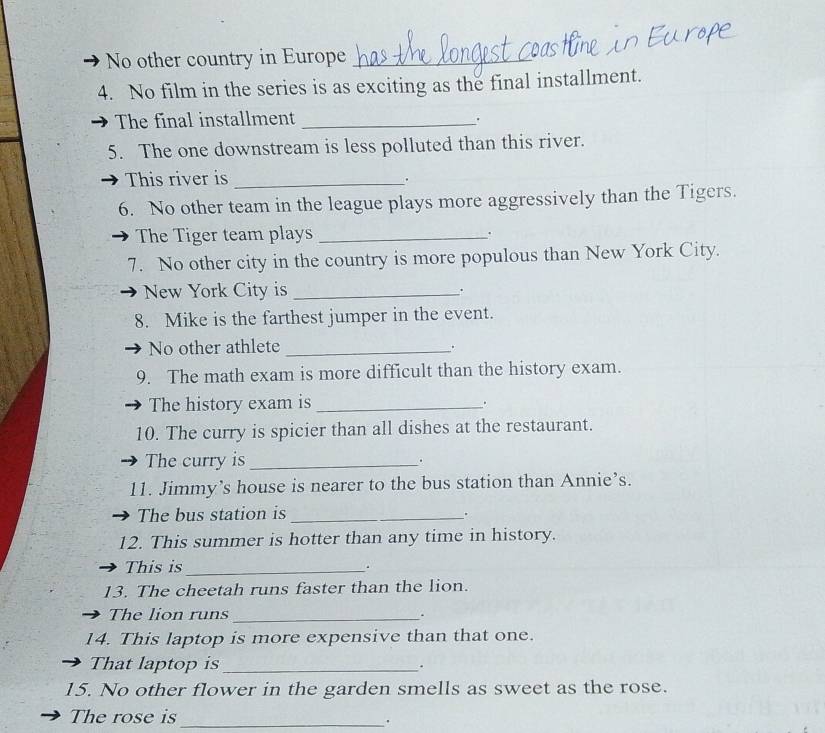 → No other country in Europe has the longest coastline in Europe
4. No film in the series is as exciting as the final installment.
→ The final installment ________________.
5. The one downstream is less polluted than this river.
→ This river is ________________.
6. No other team in the league plays more aggressively than the Tigers.
→ The Tiger team plays ________________.
7. No other city in the country is more populous than New York City.
→ New York City is ________________.
8. Mike is the farthest jumper in the event.
→ No other athlete ________________.
9. The math exam is more difficult than the history exam.
→ The history exam is ________________.
10. The curry is spicier than all dishes at the restaurant.
→ The curry is ________________.
11. Jimmy's house is nearer to the bus station than Annie's.
→ The bus station is ________ ________.
12. This summer is hotter than any time in history.
→ This is ________________.
13. The cheetah runs faster than the lion.
→ The lion runs ________________.
14. This laptop is more expensive than that one.
→ That laptop is ________________.
15. No other flower in the garden smells as sweet as the rose.
→ The rose is ________________.